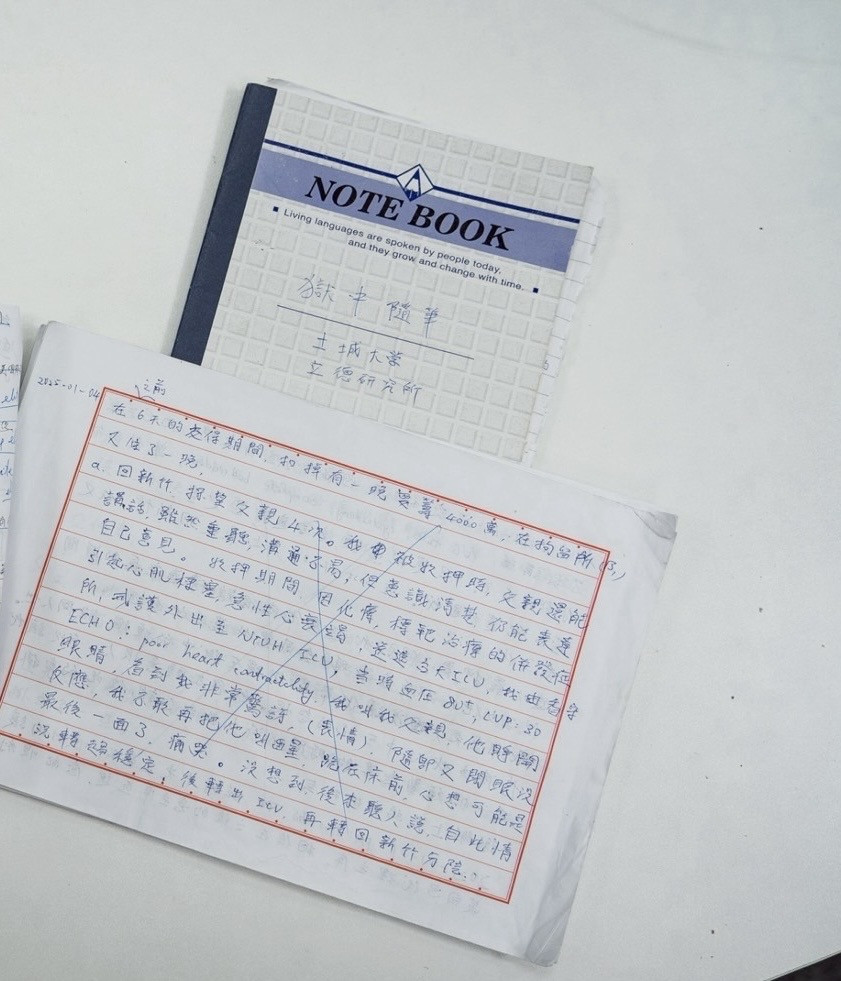 NOTE BOOK
Living languages are spoken by people today,
and they grow and change with time.
獄中隨筆
土城大学
立德研究所
2025-01-04
之前
在6天的交保期間,扣掉有一晚要籌4000萬,在拘留所
又住了一晚,
a. 回新竹,探望父親4次。我被收押時,父親還能
講話,雖然重聽,溝通不易,但意識清楚,仍能表達
自己意見。收押期間因化療,標靶治療的併發症
引起心肌梗塞,急性心衰竭,送進ICU,我由看守
所,戒護外出至NTUH ICU,當時血压80+,CVP:30
ECHO:poor heart contractility,我叫我父親,他睜開
眼睛,看到我非常驚訝(表情),隨即又閉眼沒
反應,我不敢再把他叫醒,跪在床前,心想可能是
最後一面了,痛哭。沒想到,後來聽人說,自此情
況轉趨穩定,後轉出ICU,再轉回新竹分院。